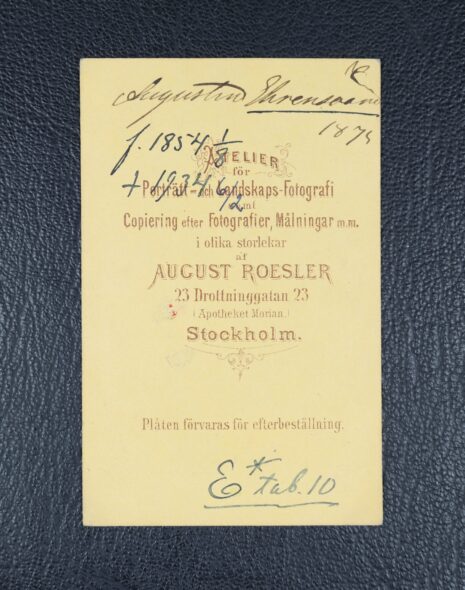 Augustin Ehrensvärd
187
f. 1854 1/8
† 1934 6/12
ATELIER
för
Porträtt- och Landskaps-Fotografi
samt
Copiering efter Fotografier, Målningar m.m.
i olika storlekar
af
AUGUST ROESLER
23 Drottninggatan 23
(Apotheket Morian.)
Stockholm.
Plåten förvaras för efterbeställning.
E* tab. 10